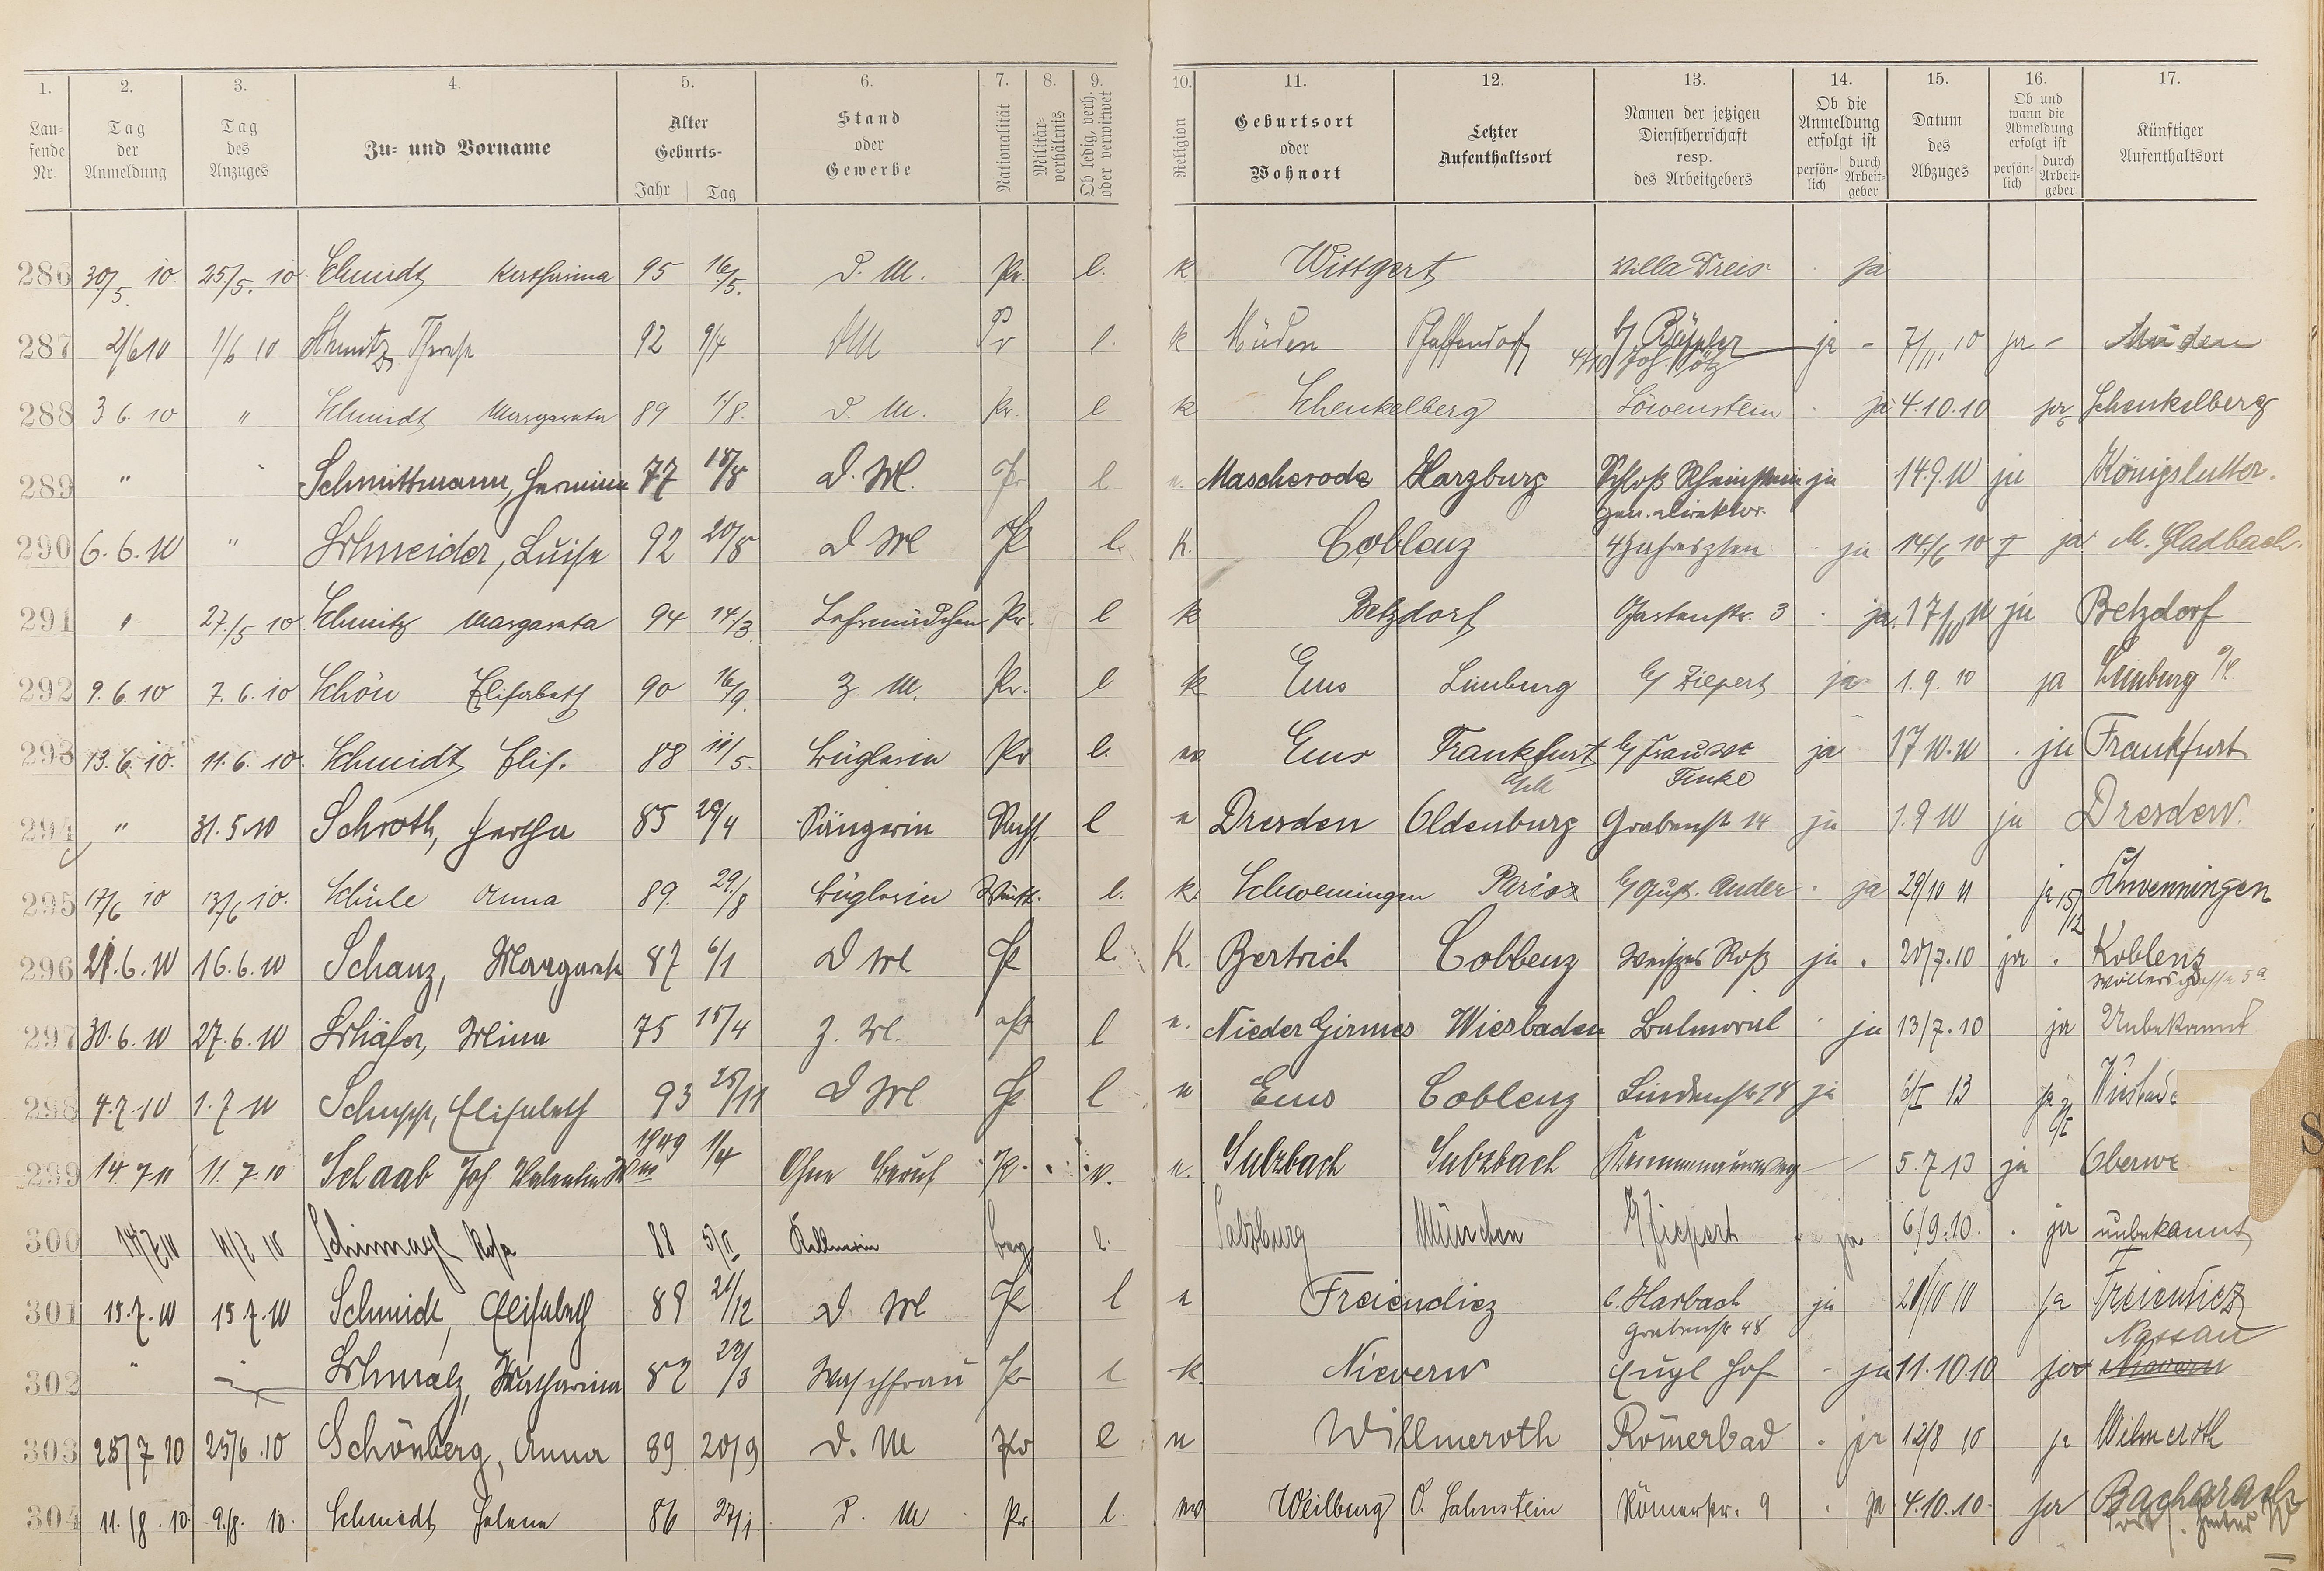 1. 2. 3. 4. 5. 6. 7. 8. 9. 10. 11. 12. 13. 14. 15. 16. 17.
Laufende Nr.
Tag der Anmeldung
Tag des Anzuges
Zu- und Vorname
Alter Geburts- Jahr Tag
Stand oder Gewerbe
Nationalität
Militärverhältnis
Ob ledig, verh. oder verwitwet
Religion
Geburtsort oder Wohnort
Letzter Aufenthaltsort
Namen der jetzigen Dienstherrschaft resp. des Arbeitgebers
Ob die Anmeldung erfolgt ist persönlich durch Arbeitgeber
Datum des Abzuges
Ob und wann die Abmeldung erfolgt ist persönlich durch Arbeitgeber
Künftiger Aufenthaltsort
286 30/5. 10. 25/5. 10 Schmidt Katharina 95 16/5. D. M. Pr. l. k Wittgert Villa Dreis ja
287 2/6 10 1/6 10 Schmitz Therese 92 9/4 DM Pr l. k Müden Pfaffendorf ja - 7/11 10 ja - Müden
288 3 6. 10 " Schmidt Margareta 89 1/8. D. M. Pr. l k Schenkelberg Löwenstein ja 4.10.10 ja Schenkelberg
289 " " Schmittmann, Hermine 77 18/8 D. M. Pr l e. Mascherode Harzburg Schloß Rheinstein ja 14.9.10 ja Königslutter.
290 6.6.10 " Schneider, Luise 92 20/8 D M Pr l. K. Coblenz Gen. Direktor 4 Jahreszten ja 14/6 10 ja M. Gladbach.
291 " 27/5 10 Schmitz Margareta 94 14/3 Lehrmädchen Pr. l k Betzdorf Gartenstr. 3 ja. 17/10 10 ja Betzdorf
292 9.6.10 7.6.10 Schön Elisabeth 90 16/9. Z. M. Pr. l k Ems Limburg b/ Ziepert ja 1.9.10 ja Limburg
293 13.6.10. 11.6.10. Schmidt Elis. 88 11/5. Büglerin Pr l. ev. Ems Frankfurt Finke ja 17.10.10 ja Frankfurt
294 " 31.5.10 Schroth, Hertha 85 29/4 Sängerin Sachs. l e Dresden Oldenburg Grabenstr 14 ja 1.9 10 ja Dresden.
295 17/6 10 13/6 10. Schüle Anna 89. 29./8 Büglerin Württ. l. k. Schwenningen Paris b/ Gust. Ander ja 29/10 11 ja 15/12 Schwenningen
296 21.6.10 16.6.10 Schanz, Margareta 87 6/1 D M Pr l. K. Bertrich Coblenz Weißes Roß ja . 20/7.10 ja . Koblenz
297 30.6.10 27.6.10 Schäfer, Mina 75 15/4 Z. M. Pr l e. Nieder Girmes Wiesbaden Balmoral ja 13/7.10 ja Unbekannt
298 4.7.10 1.7 10 Schupp, Elisabeth 93 25/11 D M Pr l e Ems Coblenz Lindenstr 18 ja 13 ja
299 14 7 10 11.7.10 Schaab Joh. Valentin 1849 1/4 Ohne Beruf Pr. v. e. Sulzbach Sulzbach 5.7 13 ja
300 14/7 10 11/7 10 Rosa 88 5/II Kellnerin l. Salzburg München b/ Ziepert ja 6/9.10. ja unbekannt
301 15.7.10 15.7.10 Schmidt, Elisabeth 89 21/12 D. M Pr l e Freiendiez b. Harbach Grabenstr 48 ja 20/10 10 ja Freiendiez
302 " " Schmalz, Katharina 82 23/3 Waschfrau Pr l k. Nievern Engl Hof ja 11.10.10 ja Nassau Nievern
303 28/7 10 25/6.10 Schönberg, Anna 89 20/9 D. M Pr l e Willmeroth Römerbad ja 12/8 10 ja Wilmeroth
304 11./8. 10. 9./8. 10. Schmidt Helene 86 27/1 D. M Pr l. ev Weilburg O. Lahnstein Römerstr. 9 ja 4.10.10. ja Bacharach